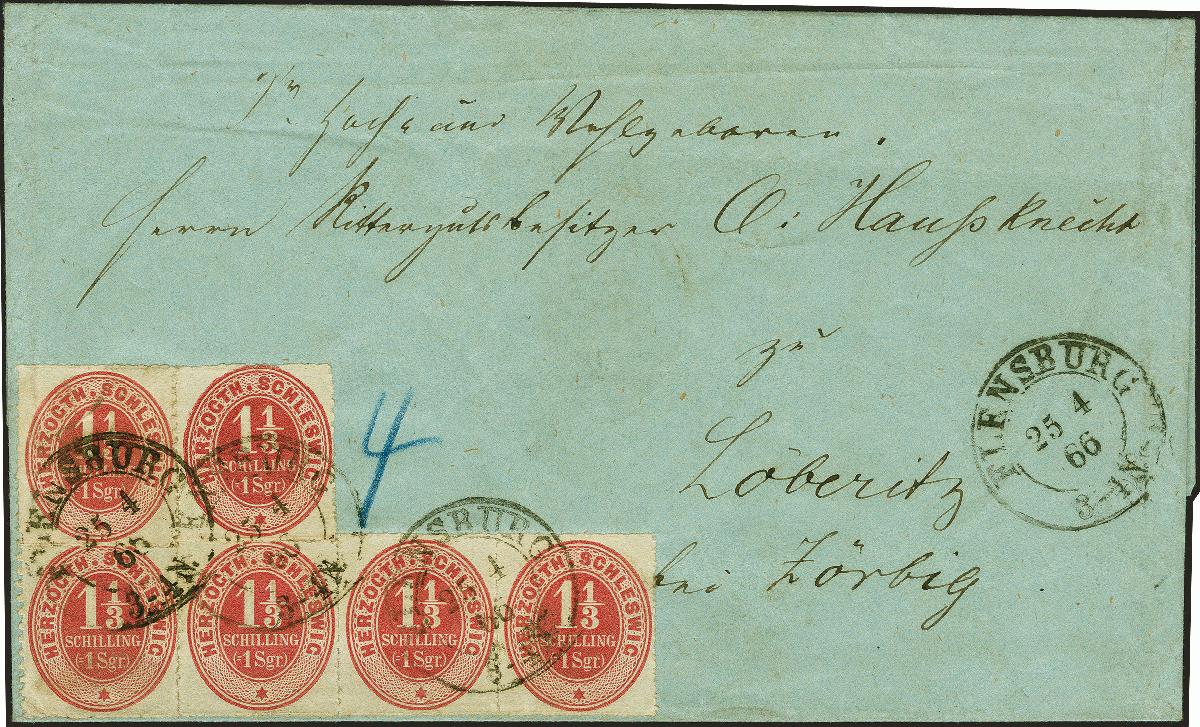 Sr. Hoch- und Wohlgeboren.
Herrn Rittergutsbesitzer O: Haußknecht
zu
Löberitz
bei Zörbig
4
FLENSBURG
25 4
66
3-4N
HERZOGTH. SCHLESWIG
1 1/3
SCHILLING
(=1 Sgr)
HERZOGTH. SCHLESWIG
1 1/3
SCHILLING
(=1 Sgr)
FLENSBURG
25 4
66
3-4N
HERZOGTH. SCHLESWIG
1 1/3
SCHILLING
(=1 Sgr)
HERZOGTH. SCHLESWIG
1 1/3
SCHILLING
(=1 Sgr)
HERZOGTH. SCHLESWIG
1 1/3
SCHILLING
(=1 Sgr)
HERZOGTH. SCHLESWIG
1 1/3
SCHILLING
(=1 Sgr)